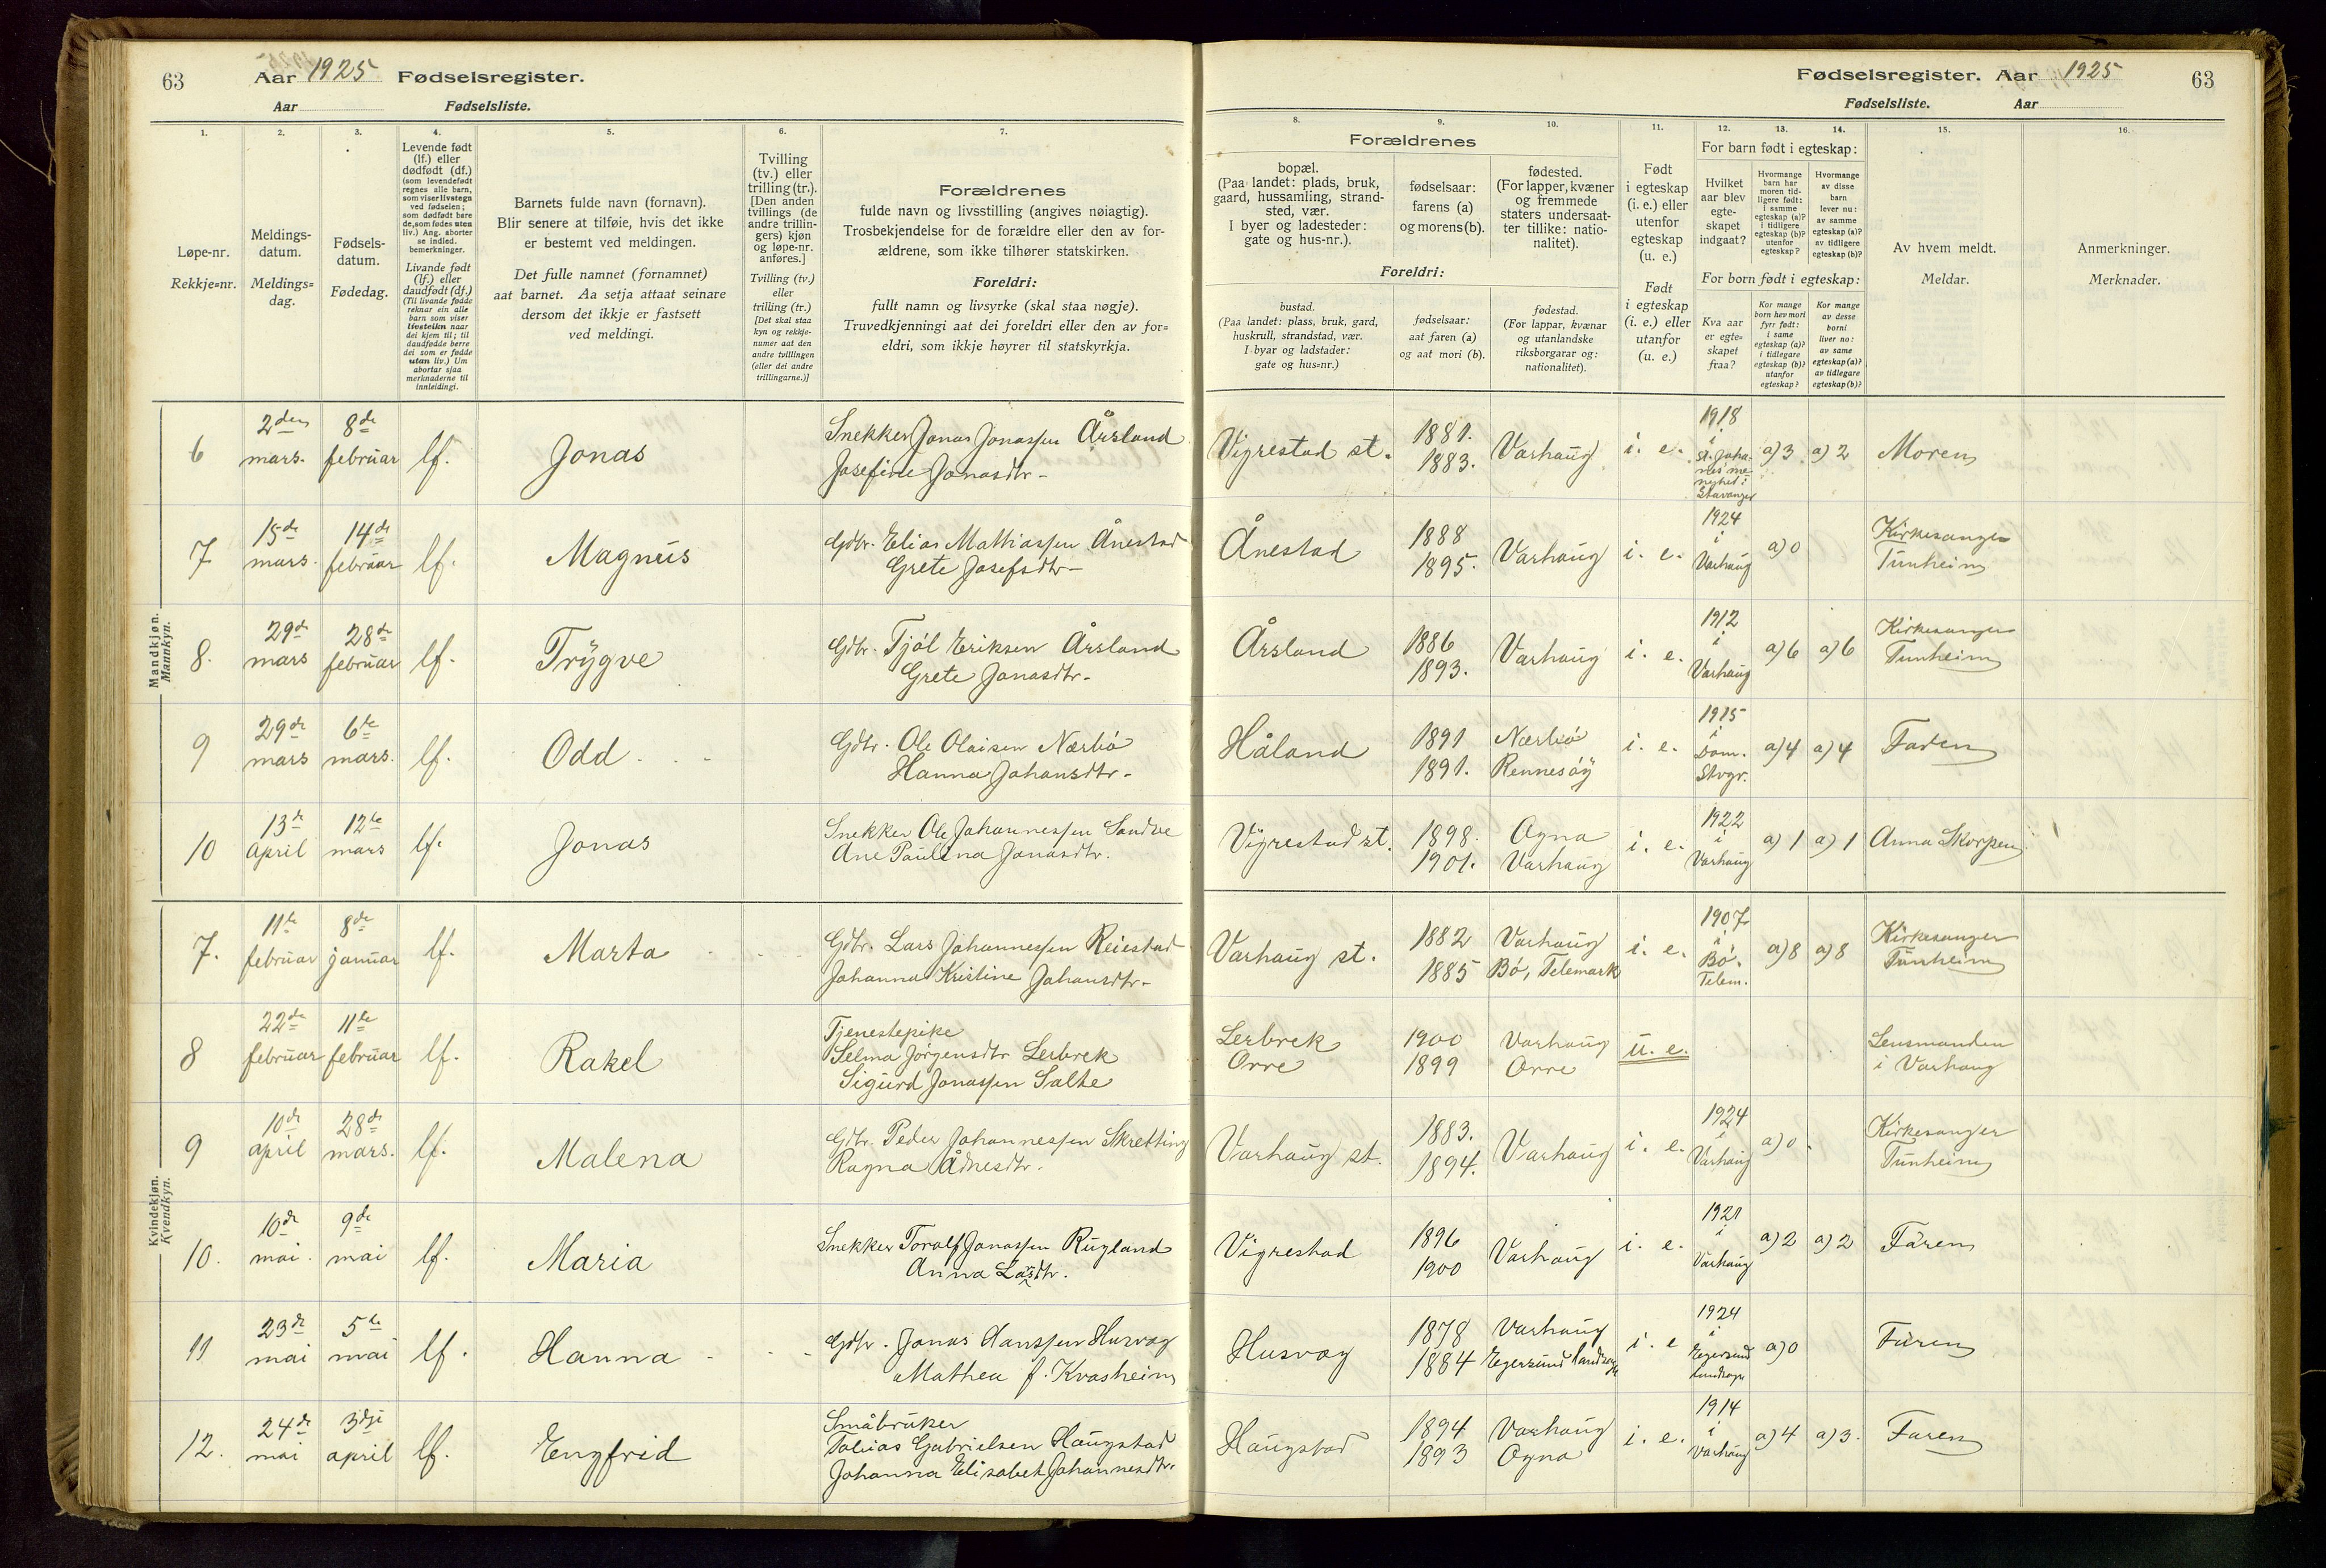 63 Aar 1925 Fødselsregister.
Aar Fødselsliste.
1. 2. 3. 4. 5. 6. 7.
Løpe-nr.
Rekkje=nr.
Meldings-
datum.
Meldings=
dag.
Fødsels-
datum.
Fødedag.
Levende født
(lf.) eller
dødfødt (df.)
(som levendefødt
regnes alle barn,
som viser livstegn
ved fødselen;
som dødfødt bare
de, som fødes uten
liv.) Ang. aborter
se indled.
bemerkninger.
Livande født
(lf.) eller
daudfødt (df.)
(Til livande fødde
reknar ein alle
barn som viser
livsteikn naar
dei kjem til; til
daudfødde berre
dei som er fødde
utan liv.) Um
abortar sjaa
merknaderne til
innleidingi.
Barnets fulde navn (fornavn).
Blir senere at tilføie, hvis det ikke
er bestemt ved meldingen.
Det fulle namnet (fornamnet)
aat barnet. Aa setja attaat seinare
dersom det ikkje er fastsett
ved meldingi.
Tvilling
(tv.) eller
trilling (tr.).
[Den anden
tvillings (de
andre trillin-
gers) kjøn
og løpe-nr.
anføres.]
Tvilling (tv.)
eller
trilling (tr.)
[Det skal staa
kyn og rekkje-
numer aat den
andre tvillingen
(eller dei andre
trillingarne.)]
Forældrenes
fulde navn og livsstilling (angives nøiagtig).
Trosbekjendelse for de forældre eller den av for-
ældrene, som ikke tilhører statskirken.
Foreldri:
fullt namn og livsyrke (skal staa nøgje).
Truvedkjenningi aat dei foreldri eller den av for=
eldri, som ikkje høyrer til statskyrkja.
Mandkjøn.
Mannkyn.
6 2den mars. 8de februar lf. Jonas Snekker Jonas Jonassen Årsland
Josefine Jonasdtr-
7 15de mars. 14de februar lf. Magnus Gdbr. Elias Mathiassen Ånestad
Grete Josefsdtr-
8. 29de mars 28de februar lf. Trygve Gdbr. Tjøl Eriksen Årsland
Grete Jonasdtr-
9 29de mars 6te mars. lf. Odd Gdbr. Ole Olaisen Nærbø
Hanna Johansdtr-
10 13de april 12te mars lf. Jonas Snekker Ole Johannessen Sandve
Ane Paulina Jonasdtr.
Kvindekjøn.
Kvendkyn.
7. 11te februar 8de januar lf. Marta Gdbr. Lars Johannessen Reiestad
Johanna Kristine Johansdtr-
8 22de februar 11te februar lf. Rakel Tjenestepike
Selma Jørgensdtr Lerbrek
Sigurd Jonassen Salte
9 10de april 28de mars. lf. Malena Gdbr. Peder Johannessen Skretting
Ragna Ådnesdtr.
10. 10de mai. 9de mai lf. Maria Snekker Toralf Jonassen Rugland
Anna Larsdtr.
11 23de mai 5te mai lf. Hanna Gdbr. Jonas Hanssen Husvæg
Mathea f. Kvasheim
12. 24de mai 3dje april lf. Engfrid Småbruker
Tobias Gabrielsen Haugstad
Johanna Elisabet Johannesdtr.
Fødselsregister. Aar 1925 63
Fødselsliste. Aar
8. 9. 10. 11. 12. 13. 14. 15. 16.
Forældrenes
bopæl.
(Paa landet: plads, bruk,
gaard, hussamling, strand-
sted, vær.
I byer og ladesteder:
gate og hus-nr.).
fødselsaar:
farens (a)
og morens (b).
fødested.
(For lapper, kvæner
og fremmede
staters undersaat-
ter tillike: natio-
nalitet).
Foreldri:
bustad.
(Paa landet: plass, bruk, gard,
huskrull, strandstad, vær.
I byar og ladstader:
gate og hus=nr.)
fødselsaar:
aat faren (a)
og aat mori (b).
fødestad.
(For lappar, kvænar
og utanlandske
riksborgarar og:
nationalitet).
Født
i egteskap
(i. e.) eller
utenfor
egteskap
(u. e.)
Født
i egteskap
(i. e.) eller
utanfor
(u. e.)
For barn født i egteskap:
Hvilket
aar blev
egte-
skapet
indgaat?
Hvormange
barn har
moren tid-
ligere født:
i samme
egteskap (a)?
i tidligere
egteskap (b)?
utenfor
egteskap?
Hvormange
av disse
barn
lever nu:
av samme
egteskap (a)?
av tidligere
egteskap (b)?
For born født i egteskap:
Kva aar
er egte=
skapet
fraa?
Kor mange
born hev mori
fyrr født:
i same
egteskap (a)?
i tidlegare
egteskap (b)?
utanfor
egteskap?
Kor mange
av desse
borni
liver no:
av same
egteskap (a)?
av tidlegare
egteskap (b)?
Av hvem meldt.
Meldar.
Anmerkninger.
Merknader.
Vigrestad st. 1881. 1883. Varhaug i. e. 1918 i St. Johannes menighet i Stavanger a) 3 a) 2 Moren
Ånestad 1888 1895. Varhaug i. e. 1924 i Varhaug a) 0 Kirkesanger Tunheim
Årsland 1886 1893. Varhaug i. e. 1912 i Varhaug a) 6 a) 6 Kirkesanger Tunheim
Håland 1891 1891. Nærbø Rennesøy i. e. 1915 i Dom. Stvgr. a) 4 a) 4 Faren
Vigrestad st. 1898. 1901. Ogna Varhaug i. e. 1922 i Varhaug a) 1 a) 1 Anna Skorpen
Varhaug st. 1882 1885 Varhaug Bø, Telemark i. e. 1907 i Bø. Telem. a) 8 a) 8 Kirkesanger Tunheim
Lerbrek Orre 1900 1899 Varhaug Orre u. e. Lensmanden i Varhaug
Varhaug st. 1883. 1894. Varhaug i. e. 1924 i Varhaug a) 0 Kirkesanger Tunheim
Vigrestad 1896 1900 Varhaug i. e. 1921 i Varhaug a) 2 a) 2 Faren
Husvæg 1878 1884 Varhaug Egersund landsogn i. e 1924 i Egersund landsogn a) 0 Faren
Haugstad 1894 1893 Varhaug Ogna i. e. 1914 i Varhaug a) 4 a) 3. Faren